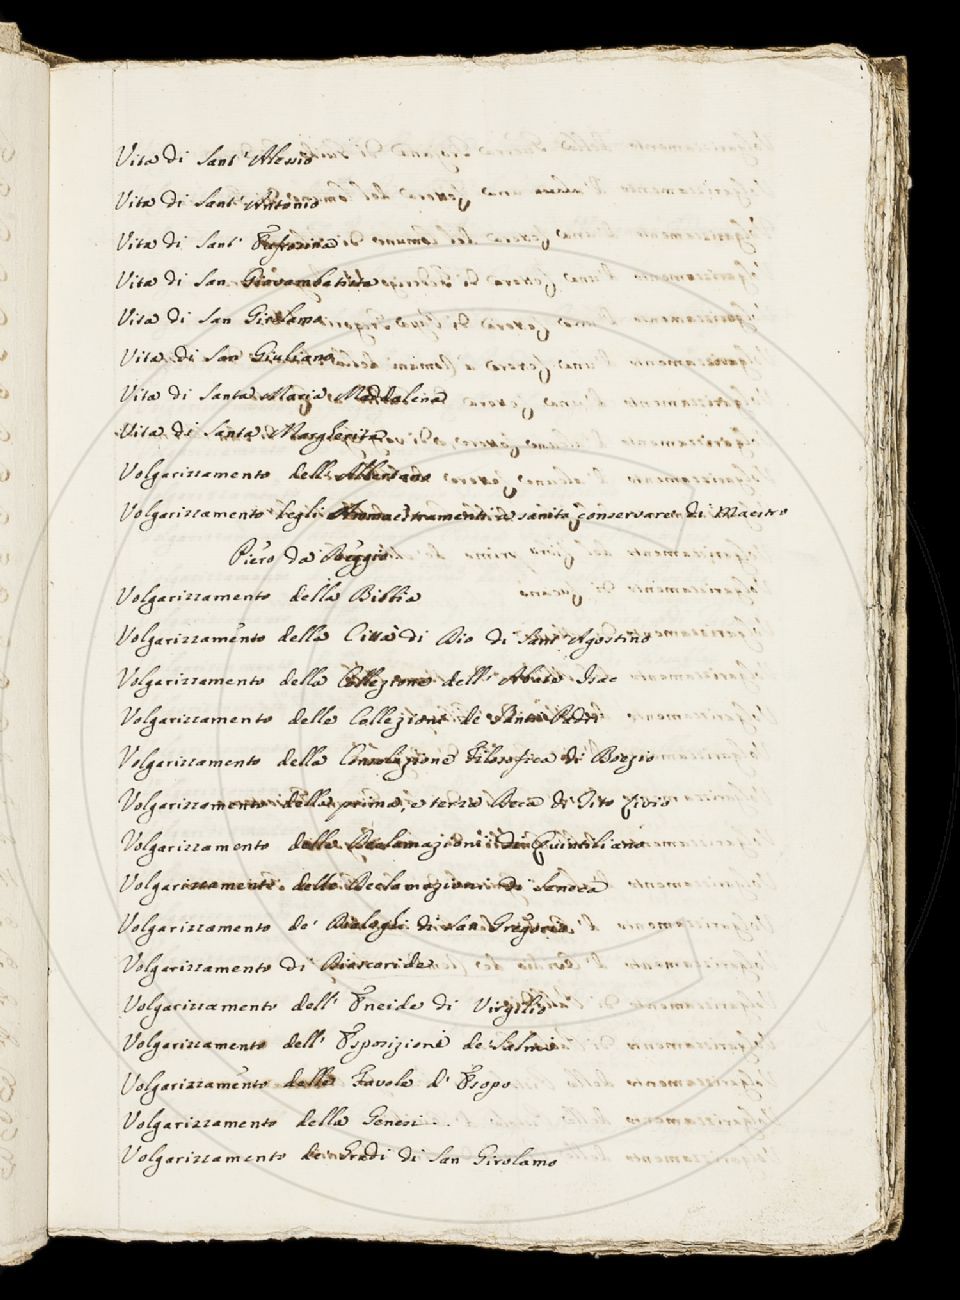 Vita di Sant' Alessio
Vita di Sant' Antonio
Vita di Sant' Eufrosina
Vita di San Giovambatista
Vita di San Girolamo
Vita di San Giuliano
Vita di Santa Maria Maddalena
Vita di Santa Margherita
Volgarizzamento dell' Albertano
Volgarizzamento degli Ammaestramenti a sanità conservare di Maestro
Piero da Reggio
Volgarizzamento della Bibbia
Volgarizzamento della Città di Dio di Sant' Agostino
Volgarizzamento della Collezione dell' Abate Isac
Volgarizzamento delle Collezioni de' Santi Padri
Volgarizzamento della Consolazione Filosofica di Boezio
Volgarizzamento della prima, e terza Deca di Tito Livio
Volgarizzamento delle Declamazioni di Quintiliano
Volgarizzamento delle Declamazioni di Seneca
Volgarizzamento de' Dialoghi di San Gregorio
Volgarizzamento di Dioscoride
Volgarizzamento dell' Eneide di Virgilio
Volgarizzamento dell' Esposizione de' Salmi
Volgarizzamento delle Favole d' Esopo
Volgarizzamento della Genesi
Volgarizzamento de' Gradi di San Girolamo